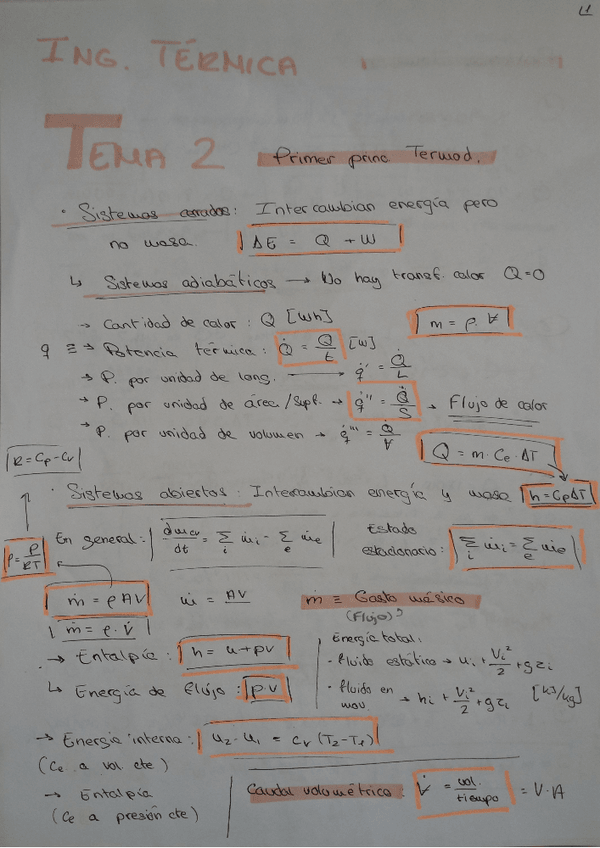 ING. TÉRMICA
TEMA 2 Primer princ. Termod.
· Sistemas cerrados: Intercambian energía pero
no masa. ΔE = Q + W
↳ Sistemas adiabáticos → No hay transf. calor Q=0
→ Cantidad de calor : Q [Wh] m = ρ·V̶
q ≡ → Potencia térmica : Q̇ = Q/t [W]
→ P. por unidad de long. → q̇' = Q̇/L
→ P. por unidad de área/supf. → q̇'' = Q̇/S → Flujo de calor
→ P. por unidad de volumen → q̇''' = Q̇/V̶
R = Cp - Cv Q = m·Ce·ΔT
· Sistemas abiertos : Intercambian energía y masa h = CpΔT
ρ = P/RT En general : dmcv/dt = Σi ṁi - Σe ṁe Estado estacionario : Σi ṁi = Σe ṁe
ṁ = ρAV ṁ = AV ṁ ≡ Gasto másico
(Flujo)
ṁ = ρ·V̇
→ Entalpía : h = u + pv
↳ Energía de flujo : p·v
Energía total:
· fluido estático → ui + Vi²/2 + gzi
· fluido en mov. → hi + Vi²/2 + gzi [kJ/kg]
→ Energía interna : u2 - u1 = cv (T2 - T1)
(Ce a vol cte)
→ Entalpía
(Ce a presión cte)
Caudal volumétrico : V̶̇ = vol./tiempo = V·A